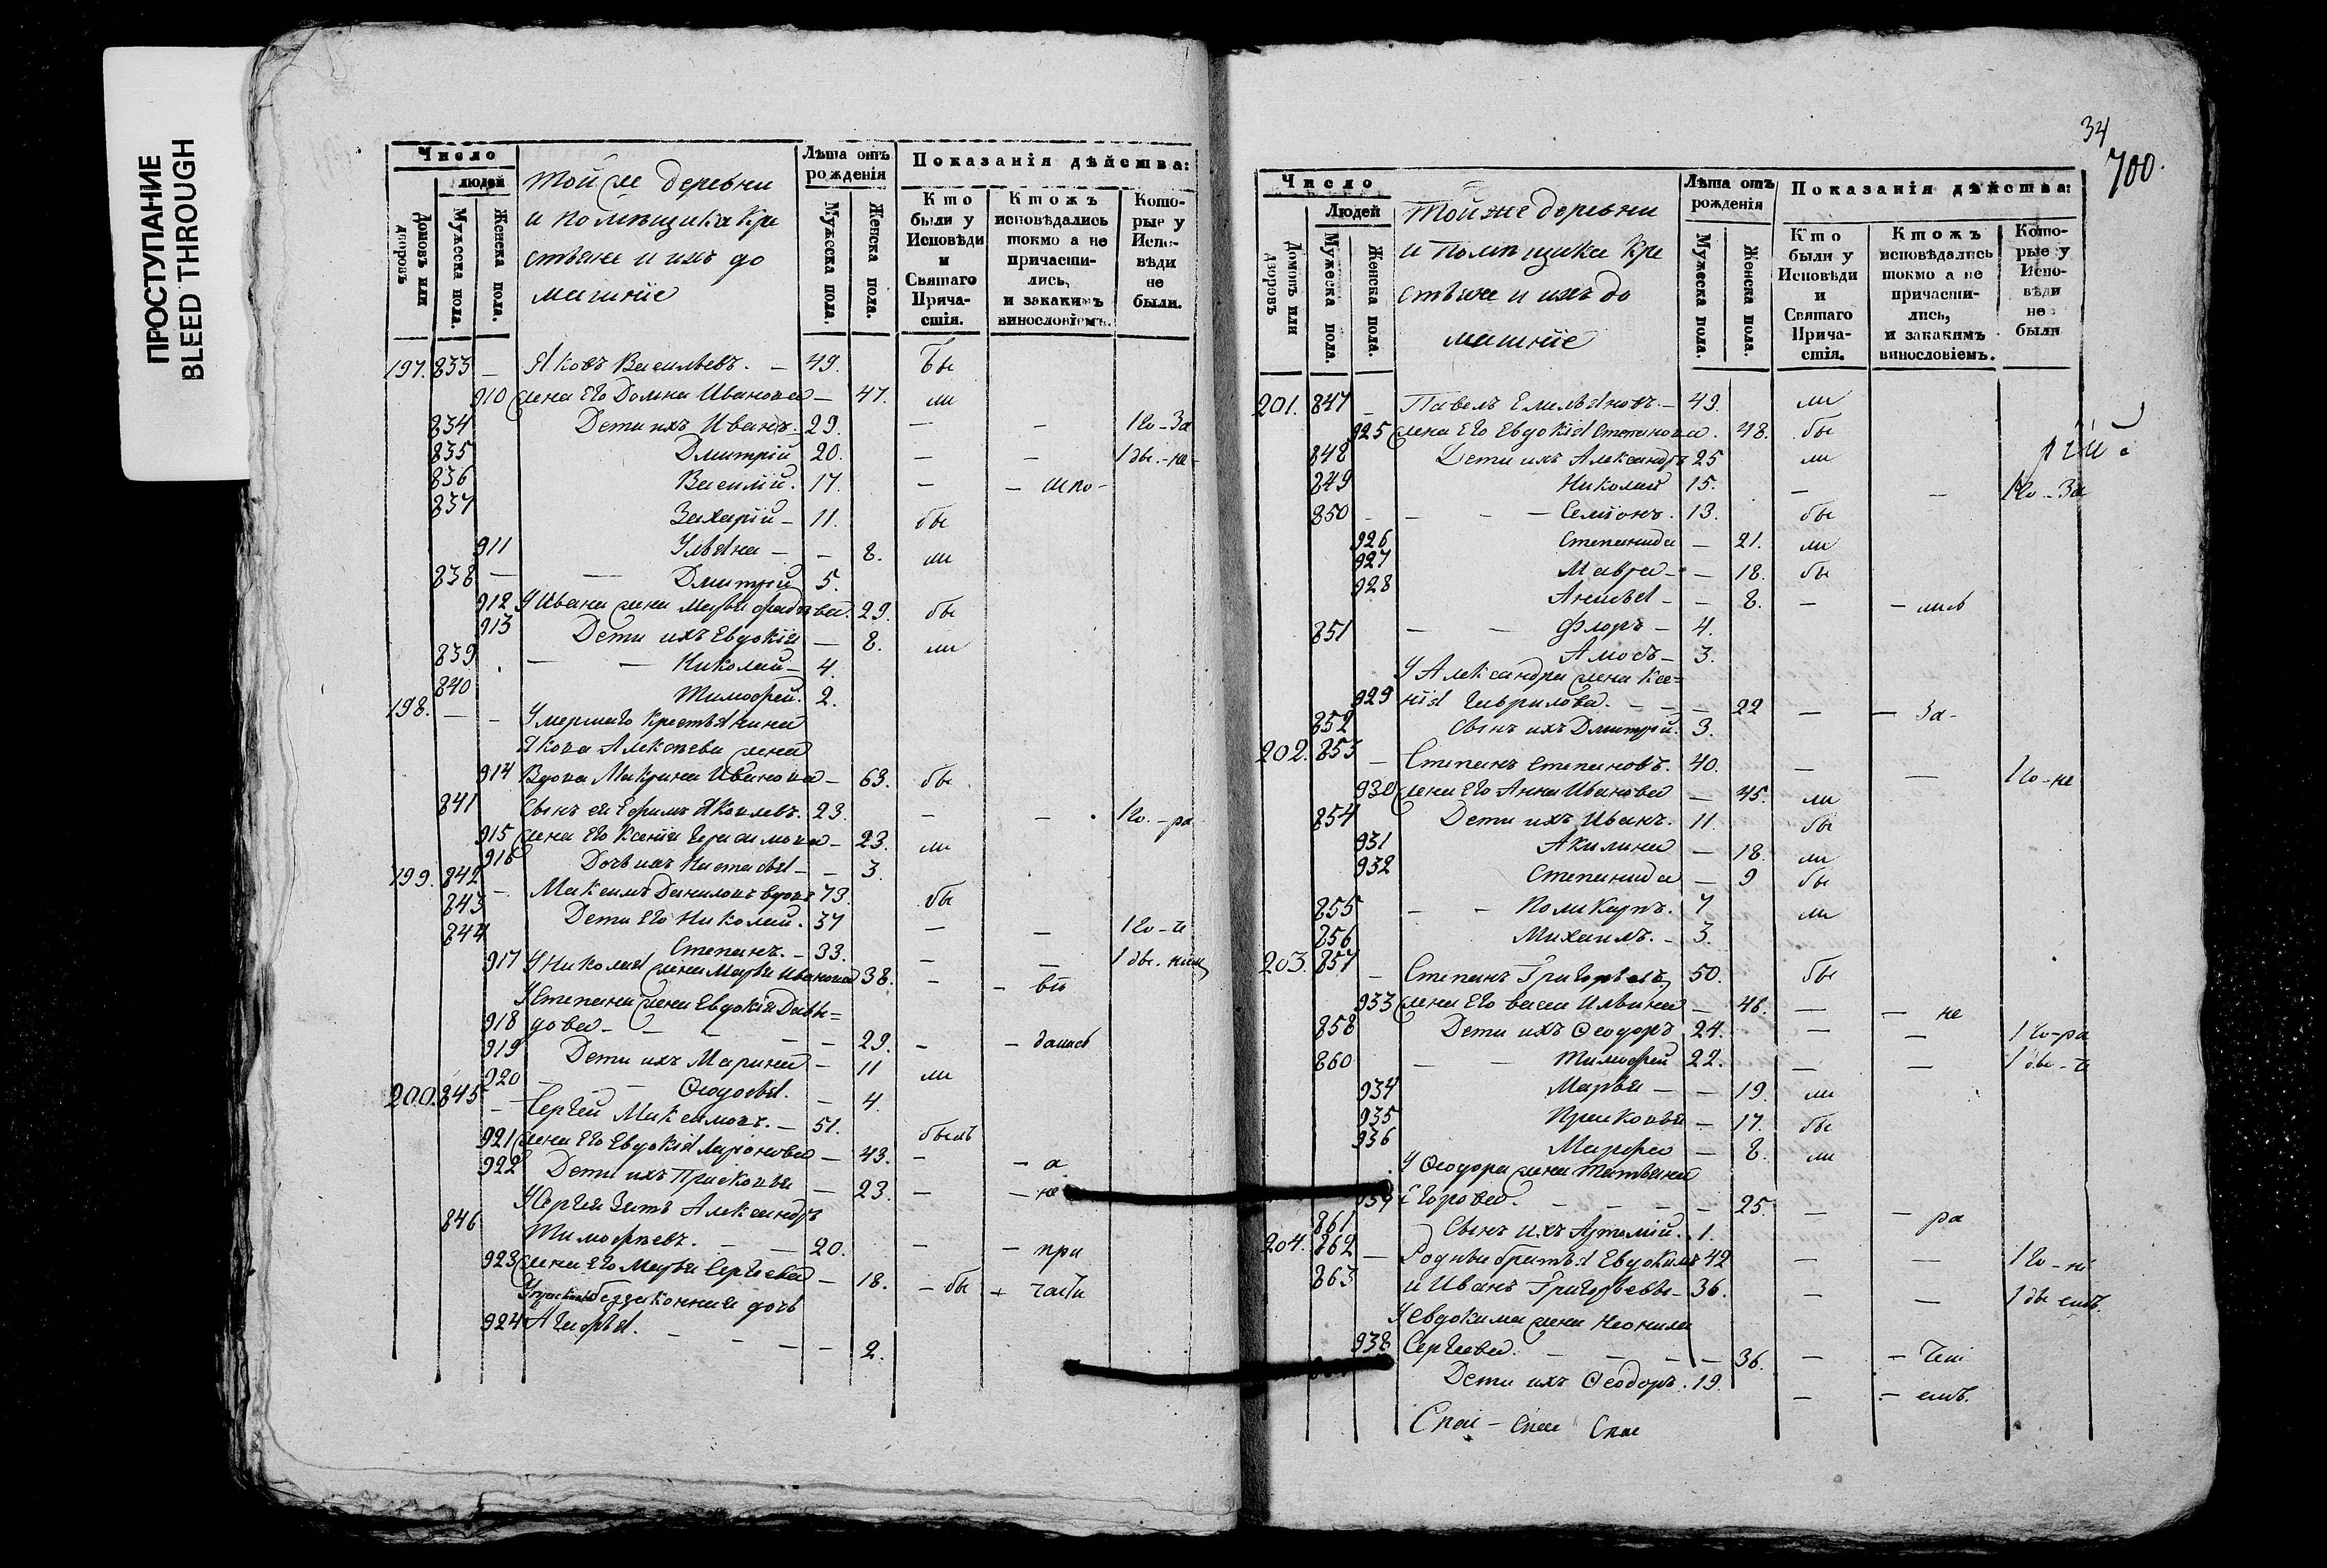 ПРОСТУПАНИЕ
BLEED THROUGH
Число
людей
Домовъ или дворовъ
Мужеска пола.
Женска пола.
Той же деревни
и помѣщика кре
стьяне и ихъ до
машніе
Лѣта отъ рожденія
Мужеска пола.
Женска пола.
Показанія дѣйства:
Кто были у Исповѣди и Святаго Прича- стія.
Ктожъ исповѣдались токмо а не причасти- лись, и закакимъ винословіемъ.
Кото- рые у Испо- вѣди не были.
197. 833 – Яковъ Васильевъ. – 49. бы
910 жена Его Домна Иванова – 47. ли
834 Дети ихъ Иванъ. 29. – – 1 го – За
835 Дмитрій 20. – – 1 ды. – не –
836 Василій. 17. – – испо –
837 Захарій – 11. бы
911 Ульяна – – 8. ли
838 – – Дмитрій 5.
912 У Ивана жена Марья Фадѣева. 29. бы
913 Дети ихъ Евдокія – 8. ли
839 – – Николай – 4.
840 Тимофей. 2.
198. – – Умершаго крестьянина
Якова Алексѣева жена
914 Вдова Макрина Иванова – 63. бы
841 Сынъ ея Ефимъ Яковлевъ. 23. – – 1 го. – ра
915 жена Его Ксенія Герасимова – 23. ли
916 Дочь ихъ Настасья – – 3.
199. 842 – Максимъ Даниловъ вдовъ 73. бы
843 Дети Его Николай. 37 – – 1 го – и
844 Степанъ. – 33. – – 1 ды.
917 У Николая жена Марья Иванова 38. – – вѣ
У Степана жена Евдокія Давы=
918 дова – – – – 29. – – дались
919 Дети ихъ Марина – 11 ли
920 – – Ѳедосья. – 4.
200. 845 – Сергей Максимовъ. – 51. былъ
921 жена Его Евдокія Ларионова – 43. – – а
922 Дети ихъ Прасковья – 23. – – не
У Сергея Зять Александръ
846 Тимофѣевъ. – – 20. – – при
923 жена Его Марья Сергѣева – 18. – бы – части
беззаконная дочь
924 Агафья. – – – – 2.
34
700.
Число
Людей
Домовъ или дворовъ
Мужеска пола.
Женска пола.
Той же деревни
и Помѣщика Кре
стьяне и ихъ до
машніе
Лѣта отъ рожденія
Мужеска пола.
Женска пола.
Показанія дѣйства:
Кто были у Исповѣди и Святаго Прича- стія.
Ктожъ исповѣдались токмо а не причасти- лись, и закакимъ винословіемъ.
Кото- рые у Испо- вѣди не были
201. 847 – Павелъ Емельяновъ. – 49. ли
925 жена Его Евдокія Степанова. 48. бы
848 Дети ихъ Александръ 25 ли рій.
849 Николай 15. – – 1 го – За
850 – – – Семіонъ. 13. бы
926 Степанида – 21. ли
927 Мавра – – 18. бы
928 Анисья – – 8. – – лись
851 – – Флоръ – 4.
Амосъ – 3.
У Александра жена Ксе=
929 нія Гаврилова. – – – 22 – – За –
852 Сынъ ихъ Дмитрій. 3.
202. 853 – Степанъ Степановъ. 40. – – 1 го – не
930 жена Его Анна Иванова – 45. ли
854 Дети ихъ Иванъ. 11. бы
931 Акилина – 18. ли
932 Степанида – 9 бы
855 – – Поликарпъ. 7 ли
856 Михаилъ. – 3.
203. 857 – Степанъ Григорьевъ 50. бы
933 жена Его Васса Ильина – 46. – – не
858 Дети ихъ Ѳеодоръ 24. – – 1 го – ра
860 – – Тимофей 22. – – 1 ды – и
934 Марья – – 19. ли
935 Прасковья – 17. бы
936 Марфа – 8. ли
У Ѳеодора жена Татьяна
937 Егорова. – – – – 25. – – ра
861 Сынъ ихъ Артемій. 1.
204. 862 – Родные братья Евдокимъ 42 – – 1 го – ні
863 и Иванъ Григорьевы – 36. – – 1 ды енъ.
У Евдокима жена Неонила
938 Сергѣева. – – – – 36. – –
Дети ихъ Ѳеодоръ. 19. – – емъ.
Спас – Спас Спас